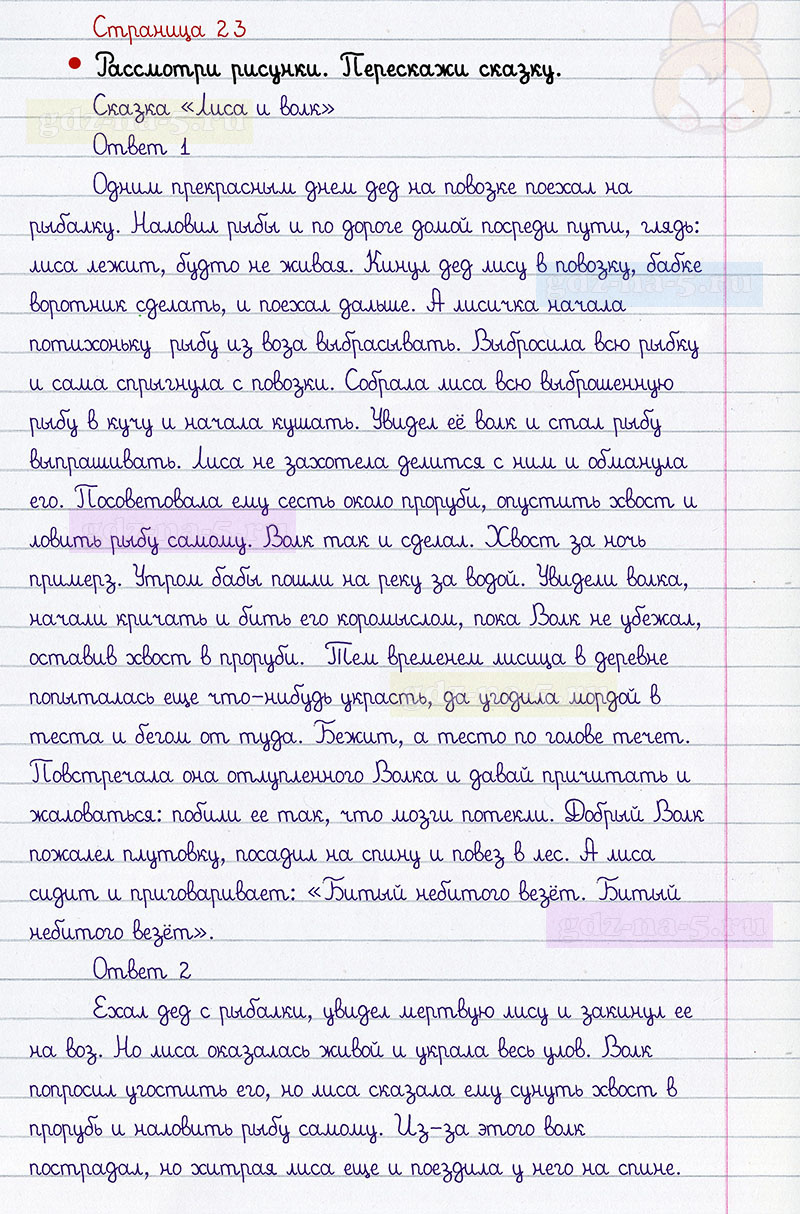 Страница 23
• Рассмотри рисунки. Перескажи сказку.
Сказка «Лиса и волк»
gdz-na-5.ru
Ответ 1
Одним прекрасным днем дед на повозке поехал на
рыбалку. Наловил рыбы и по дороге домой посреди пути, глядь:
лиса лежит, будто не живая. Кинул дед лису в повозку, бабке
gdz-na-5.ru
воротник сделать, и поехал дальше. А лисичка начала
потихоньку рыбу из воза выбрасывать. Выбросила всю рыбку
и сама спрыгнула с повозки. Собрала лиса всю выброшенную
рыбу в кучу и начала кушать. Увидел её волк и стал рыбу
выпрашивать. Лиса не захотела делится с ним и обманула
его. Посоветовала ему сесть около проруби, опустить хвост и
gdz-na-5.ru
ловить рыбу самому. Волк так и сделал. Хвост за ночь
примерз. Утром бабы пошли на реку за водой. Увидели волка,
начали кричать и бить его коромыслом, пока Волк не убежал,
оставив хвост в проруби. Тем временем лисица в деревне
попыталась еще что-нибудь украсть, да угодила мордой в
gdz-na-5.ru
теста и бегом от туда. Бежит, а тесто по голове течет.
Повстречала она отлупленного Волка и давай причитать и
жаловаться: побили ее так, что мозги потекли. Добрый Волк
пожалел плутовку, посадил на спину и повез в лес. А лиса
сидит и приговаривает: «Битый небитого везёт. Битый
небитого везёт».
gdz-na-5.ru
Ответ 2
Ехал дед с рыбалки, увидел мертвую лису и закинул ее
на воз. Но лиса оказалась живой и украла весь улов. Волк
попросил угостить его, но лиса сказала ему сунуть хвост в
прорубь и наловить рыбу самому. Из-за этого волк
пострадал, но хитрая лиса еще и поездила у него на спине.